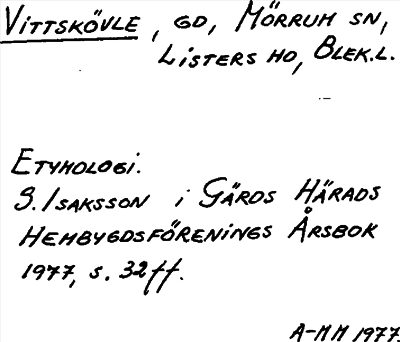 VITTSKÖVLE, GD, MÖRRUM SN,
LISTERS HD, BLEK.L.
ETYMOLOGI.
S. ISAKSSON i GÄRDS HÄRADS
HEMBYGDSFÖRENINGS ÅRSBOK
1977, s. 32 ff.
A-MM 1977.